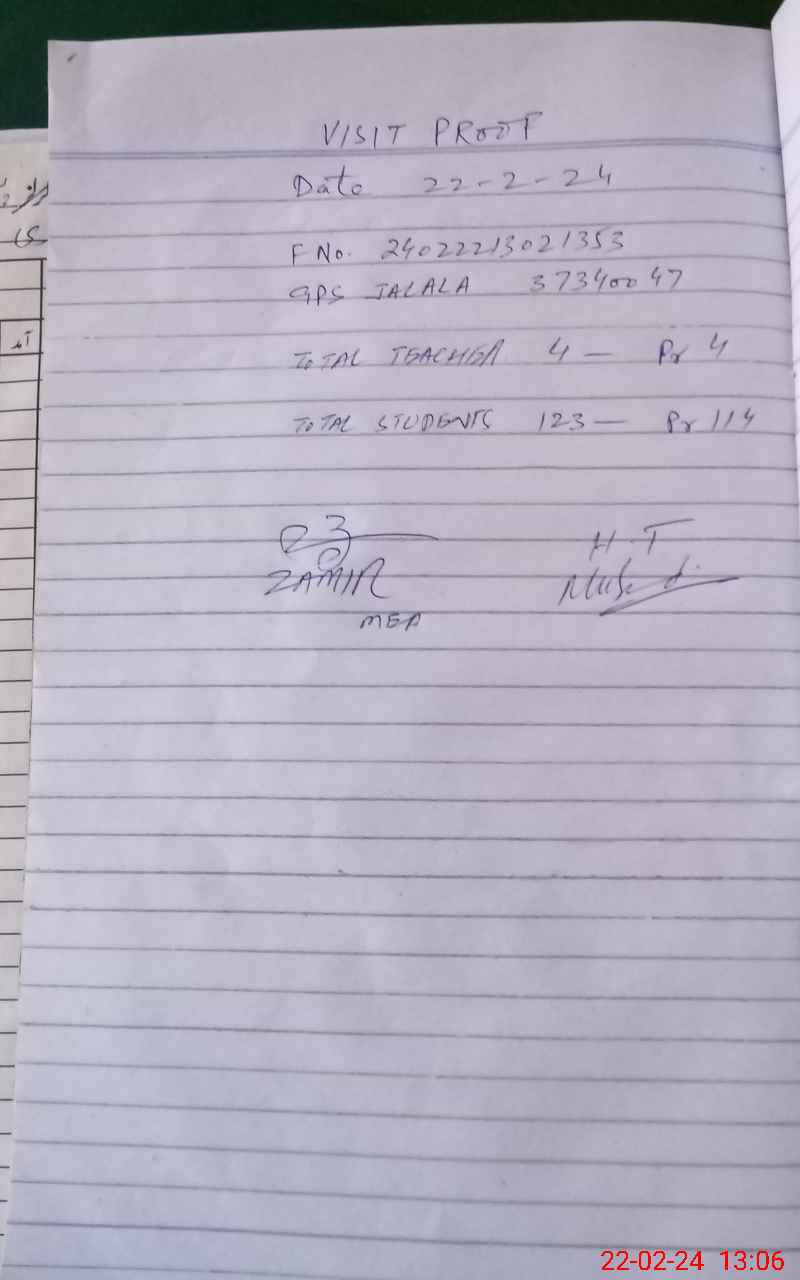 VISIT PROOF
Date 22-2-24
F No. 24022213021353
GPS JALALA 37340047
TOTAL TEACHER 4 — Pr 4
TOTAL STUDENTS 123 — Pr 114
H.T
ZAMIR
MEA
22-02-24 13:06